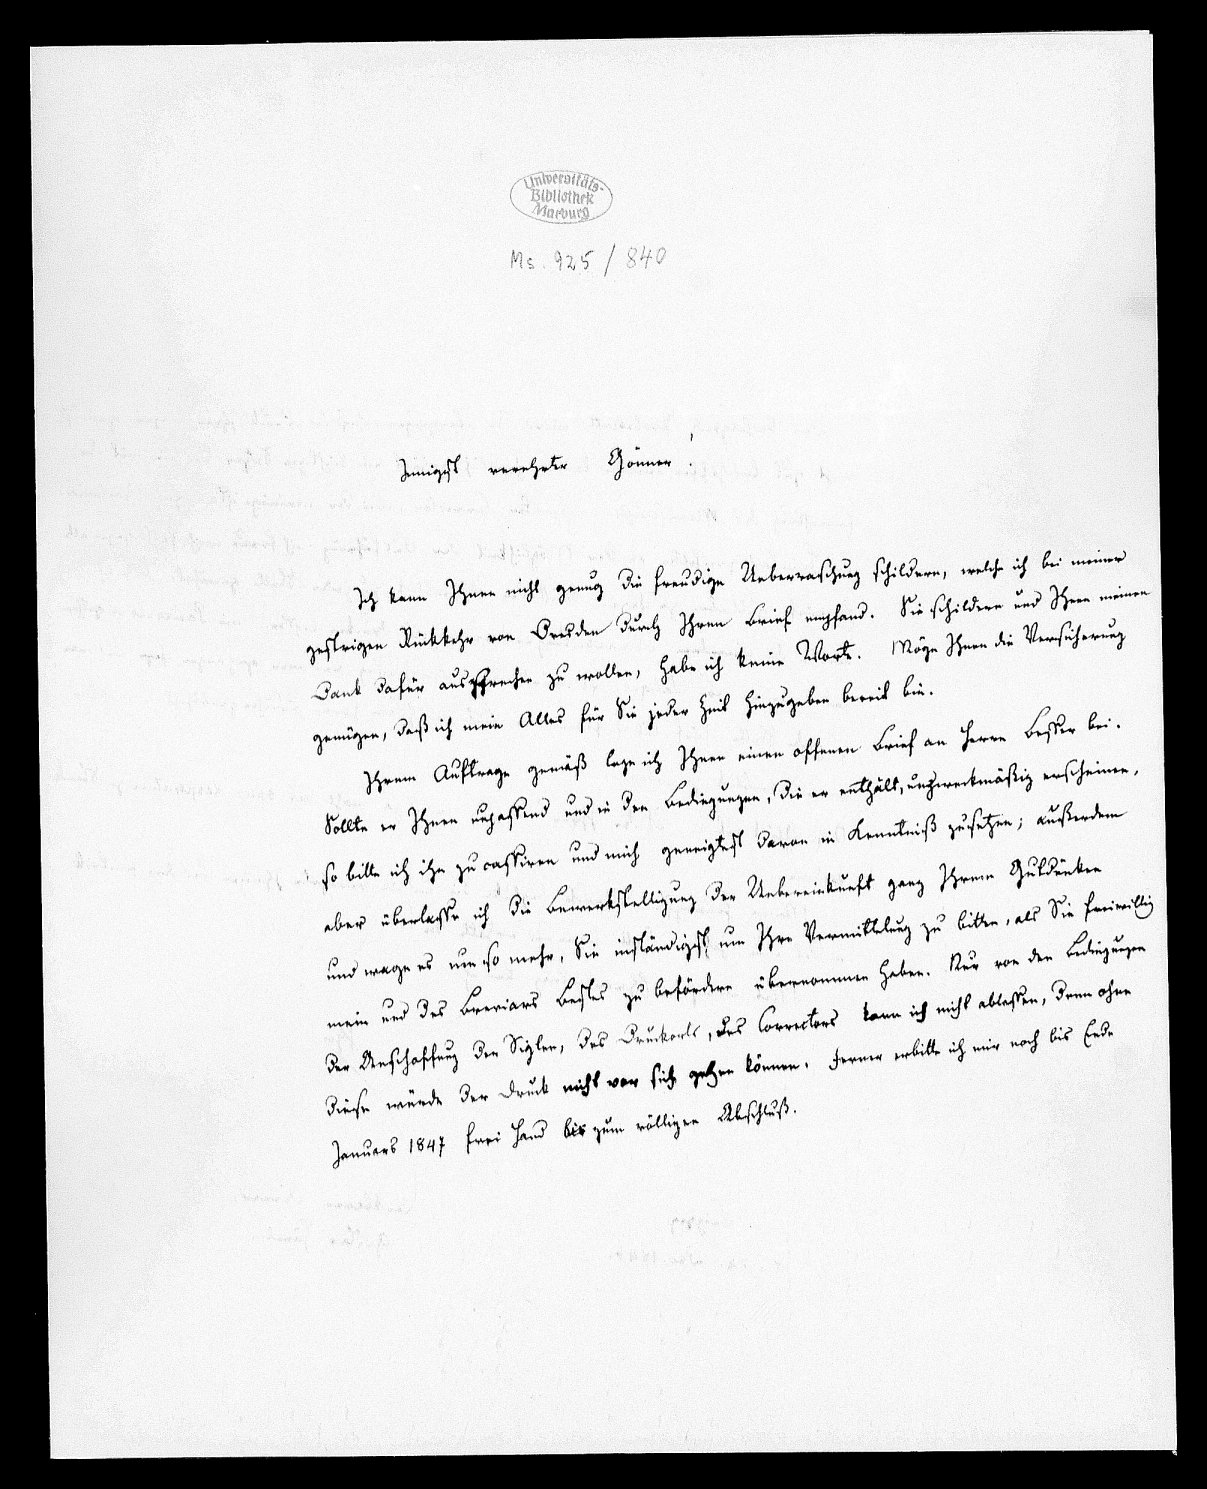 Universitäts-
Bibliothek
Marburg
Ms. 925/840
Innigst verehrter Gönner!
Ich kann Ihnen nicht genug die freudige Ueberraschung schildern, welche ich bei meiner
gestrigen Rückkehr von Dresden durch Ihren Brief empfand. Sie schildern und Ihnen meinen
Dank dafür aussprechen zu wollen, habe ich keine Worte. Möge Ihnen die Versicherung
genügen, daß ich mein Alles für Sie jeder Zeit hinzugeben bereit bin.
Ihrem Auftrage gemäß lege ich Ihnen einen offenen Brief an Herrn Besser bei.
Sollte er Ihnen unpassend und in den Bedingungen, die er enthält, unzweckmäßig erscheinen,
so bitte ich ihn zu cassiren und mich geneigtest davon in Kenntniß zu setzen; außerdem
aber überlasse ich die Bewerkstelligung der Uebereinkunft ganz Ihrem Gutdünken
und wage es um so mehr, Sie inständigst um Ihre Vermittelung zu bitten, als Sie freiwillig
mein und des Breviars Bestes zu befördern übernommen haben. Nur von den Bedingungen
der Anschaffung der Siglen, des Druckorts, des Correctors kann ich nicht ablassen, denn ohne
diese würde der Druck nicht vor sich gehen können. Ferner erbitte ich mir noch bis Ende
Januars 1847 frei Hand bis zum völligen Abschluß.